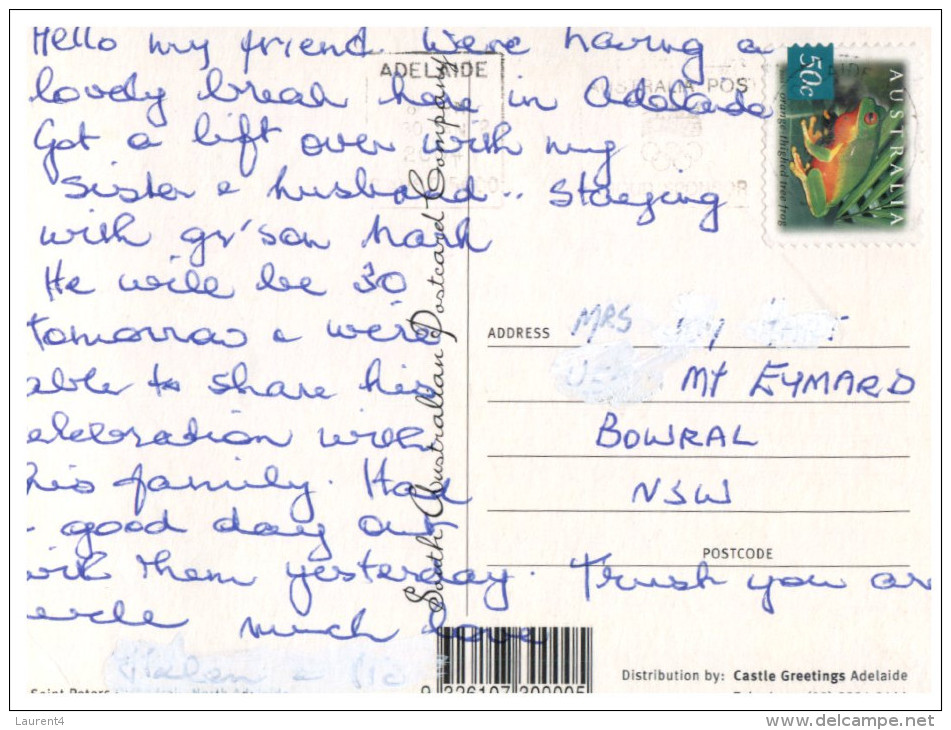 Hello my friend. Were having a
lovely break here in Adelaide
Got a lift over with my
Sister & husband.. Staying
with gr'son Mark
He will be 30
tomorrow & were
able to share his
elebration with
his family. Had
good day out
with them yesterday. Trust you ar
well much love
ADELAIDE
AUSTRALIA POS
SPONSOR
50c
AUSTRALIA
orange-thighed tree frog
South Australian Postcard Company
ADDRESS MRS
MT EYMARD
BOWRAL
NSW
POSTCODE
Helen
9 326107 300005
Distribution by: Castle Greetings Adelaide
Saint Peters North Adelaide
Laurent4
www.delcampe.net